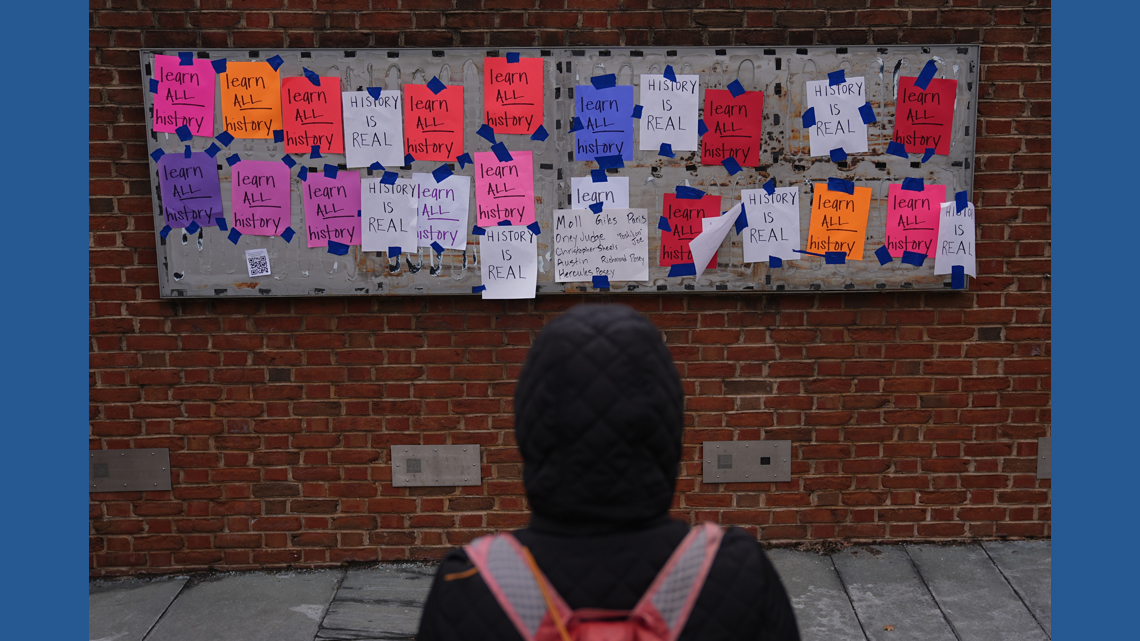 learn
ALL
history
learn
ALL
history
learn
ALL
history
HISTORY
IS
REAL
learn
ALL
history
learn
ALL
history
learn
ALL
history
HISTORY
IS
REAL
learn
ALL
history
HISTORY
IS
REAL
learn
ALL
history
learn
ALL
history
learn
ALL
history
learn
ALL
history
HISTORY
IS
REAL
learn
ALL
history
learn
ALL
history
HISTORY
IS
REAL
learn
Moll Giles Paris
Oney Judge
Joe
Christopher Sheels
Austin Richmond Posey
Hercules Posey
learn
ALL
HISTORY
IS
REAL
learn
ALL
history
learn
ALL
history
HISTORY
IS
REAL